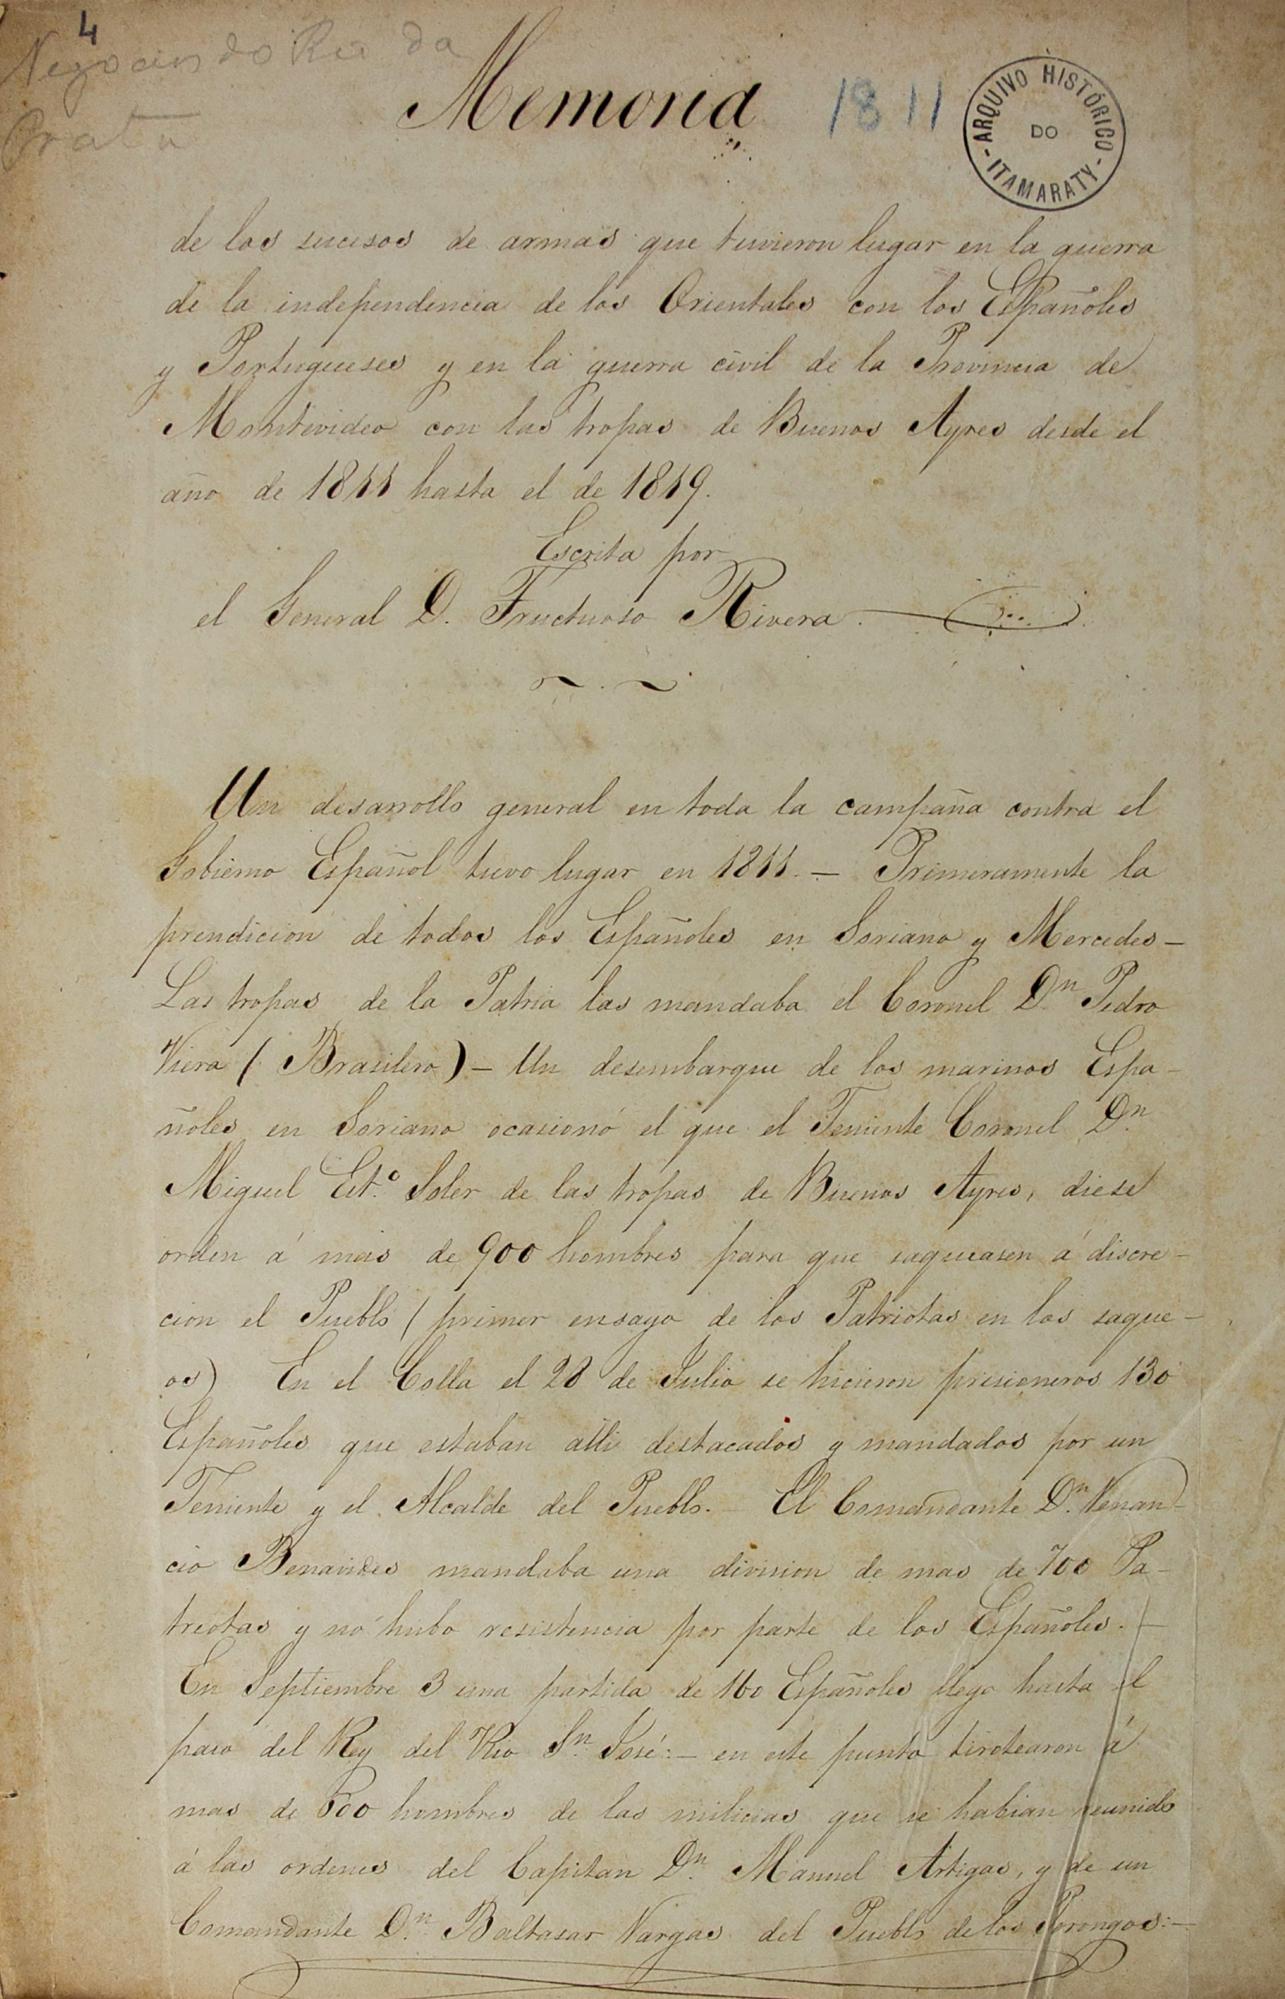 4
Negocios do Rio da
Prata
Memoria
1811
ARQUIVO HISTÓRICO
DO
- ITAMARATY -
de los sucesos de armas que tuvieron lugar en la guerra
de la independencia de los Orientales con los Españoles
y Portugueses y en la guerra civil de la Provincia de
Montivideo con las tropas de Buenos Ayres desde el
año de 1811 hasta el de 1819.
Escrita por
el General D. Fructuoso Rivera.
Un desarrollo general en toda la campaña contra el
Gobierno Español tuvo lugar en 1811. — Primeramente la
prendicion de todos los Españoles en Soriano y Mercedes —
Las tropas de la Patria las mandaba el Coronel Dn. Pedro
Viera ( Brasilero ) — Un desembarque de los marinos Espa-
ñoles en Soriano ocasionó el que el Teniente Coronel Dn.
Miguel Est.º Soler de las tropas de Buenos Ayres, diese
orden á mas de 900 hombres para que saqueasen á discre-
cion el Pueblo ( primer ensayo de los Patriotas en los saque-
os) En el Colla el 28 de Julio se hicieron prisioneros 130
Españoles que estaban alli destacados y mandados por un
Teniente y el Alcalde del Pueblo. — El Comandante Dn. Venan-
cio Benavides mandaba una division de mas de 700 Pa-
triotas y no hubo resistencia por parte de los Españoles. —
En Septiembre 3 una partida de 160 Españoles llego hasta el
paso del Rey del Rio Sn. José: — en este punto tirotearon á
mas de 600 hombres de las milicias que se habian reunido
á las ordenes del Capitan Dn. Manuel Artigas, y de un
Comandante Dn. Baltasar Vargas del Pueblo de los Porongos: —